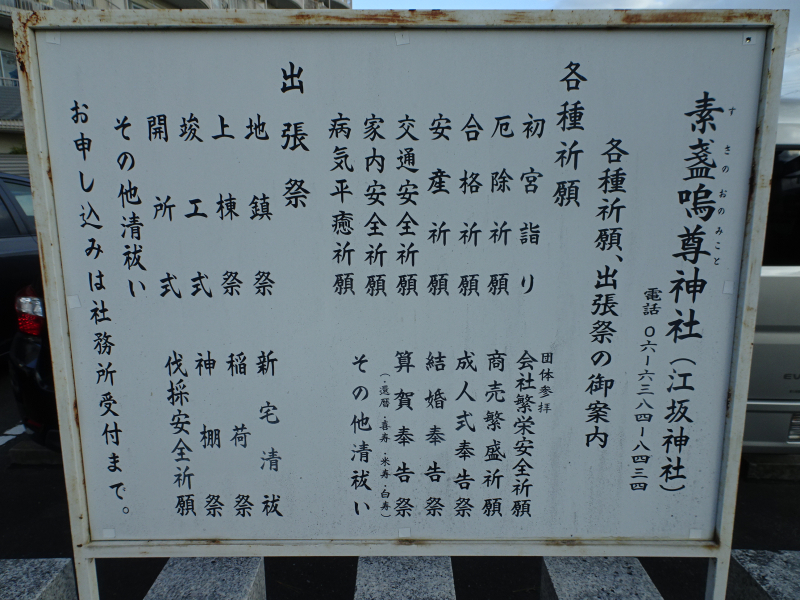 素盞嗚尊神社（江坂神社）
すさのおのみこと
電話 〇六ー六三八四ー八四三四
各種祈願、出張祭の御案内
各種祈願
初宮詣り
厄除祈願
合格祈願
安産祈願
交通安全祈願
家内安全祈願
病気平癒祈願
団体参拝
会社繁栄安全祈願
商売繁盛祈願
成人式奉告祭
結婚奉告祭
算賀奉告祭
（・還暦・喜寿・米寿・白寿）
その他清祓い
出張祭
地鎮祭
上棟祭
竣工式
開所式
その他清祓い
新宅清祓
稲荷祭
神棚祭
伐採安全祈願
お申し込みは社務所受付まで。